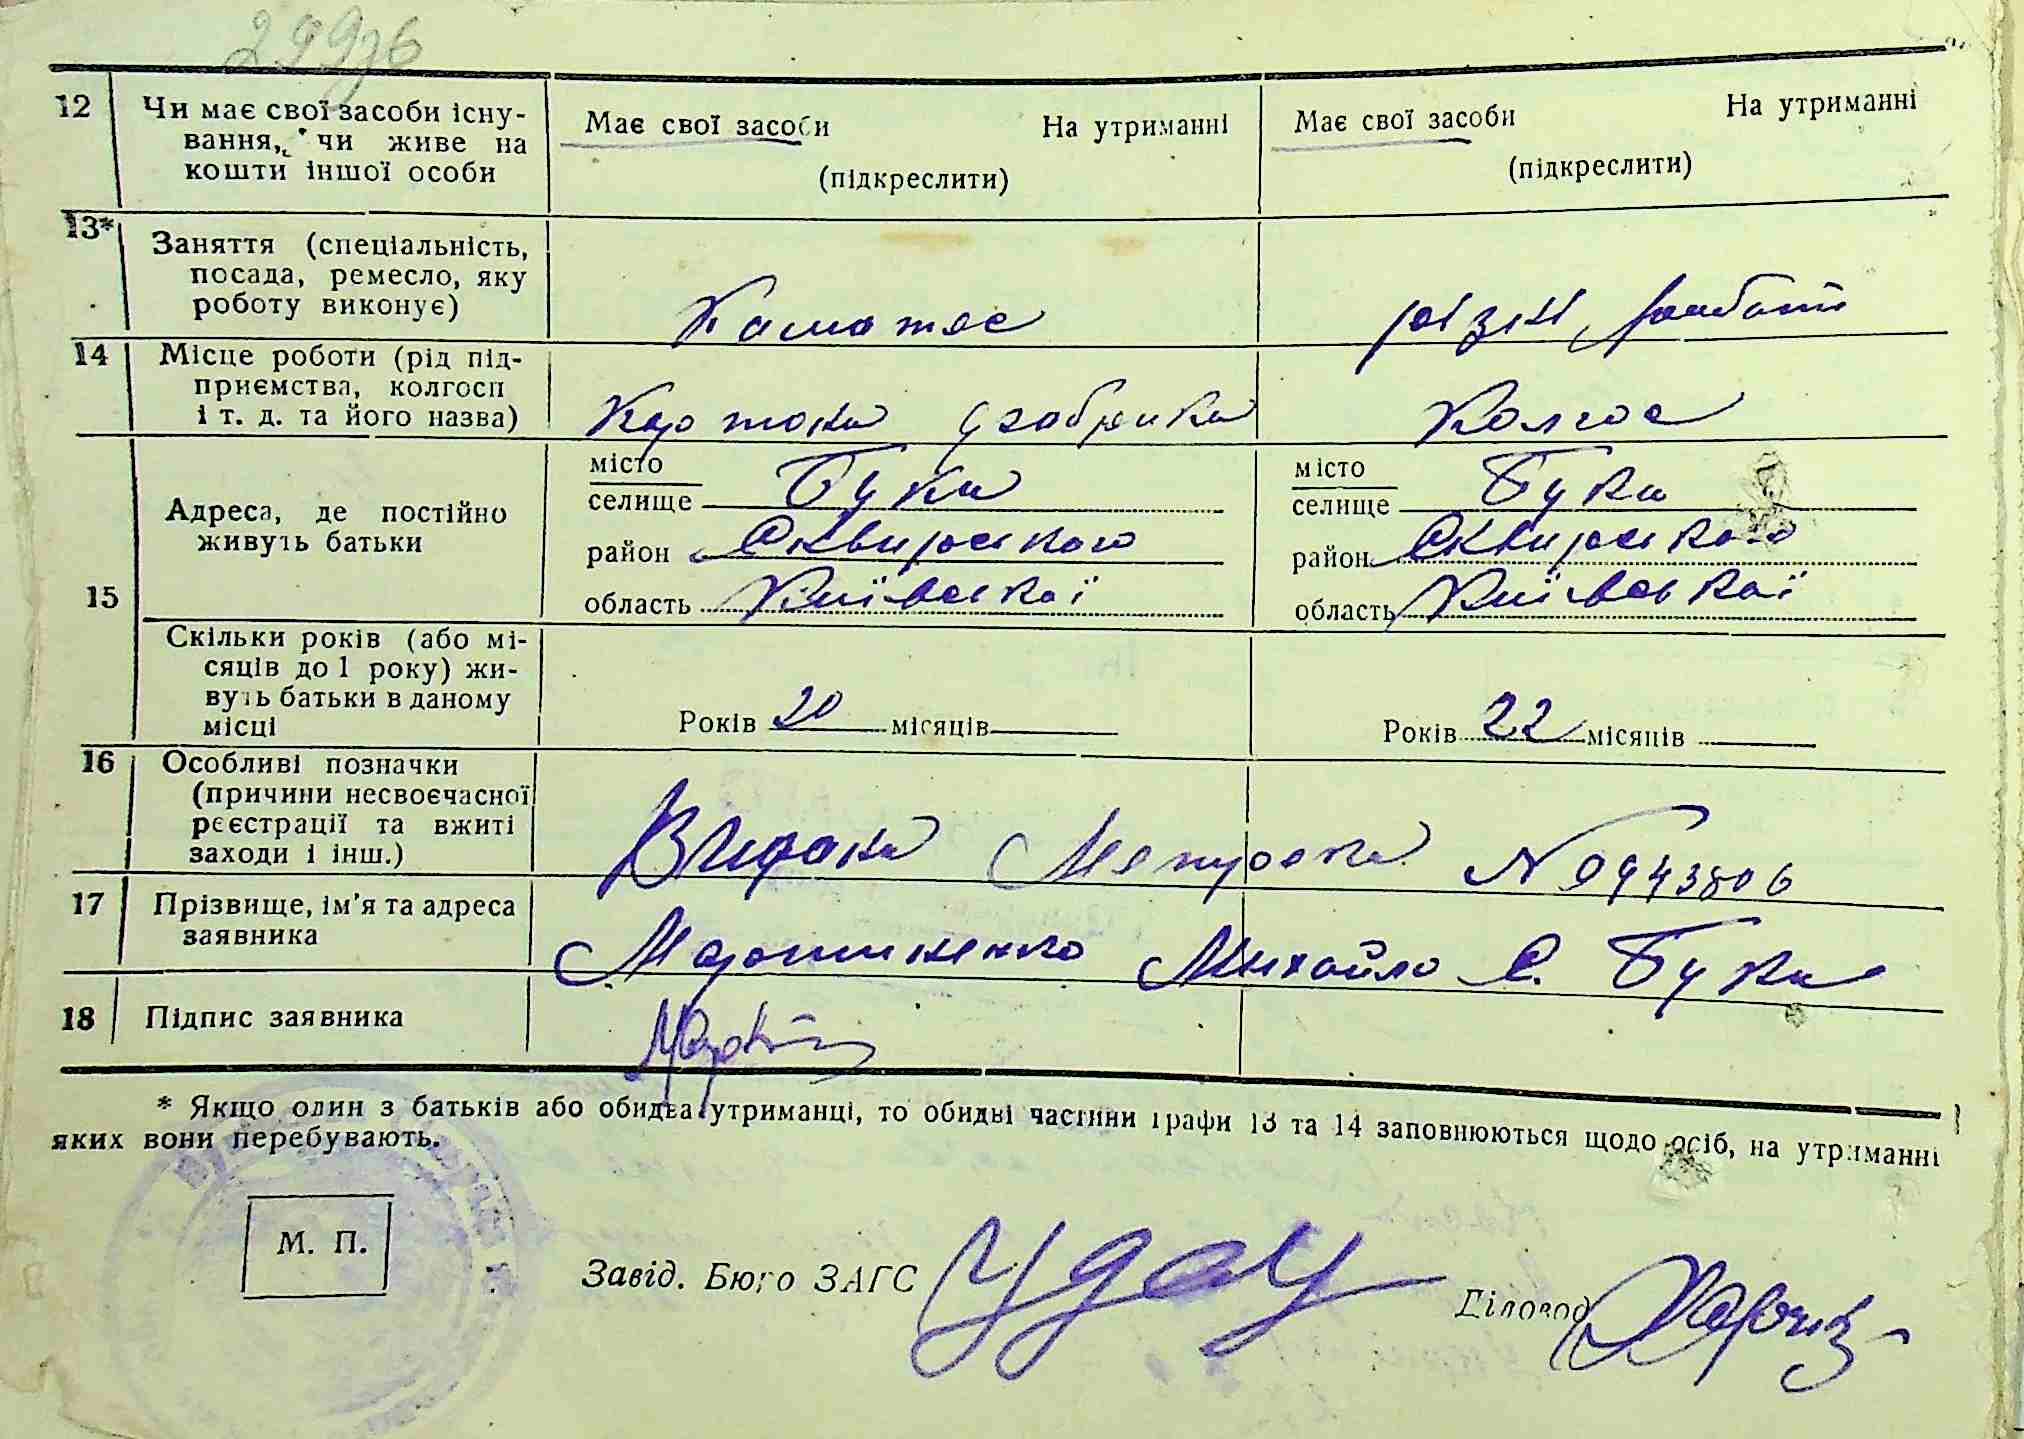 12
Чи має свої засоби існу-
вання, чи живе на
кошти іншої особи
Має свої засоби На утриманні
(підкреслити)
Має свої засоби На утриманні
(підкреслити)
13*
Заняття (спеціальність,
посада, ремесло, яку
роботу виконує)
різни
14
Місце роботи (рід під-
приємства, колгосп
і т. д. та його назва)
Колгос
15
Адреса, де постійно
живуть батьки
місто
селище Буки
район Сквирского
область Київської
місто
селище Буки
район Сквирского
область Київської
Скільки років (або мі-
сяців до 1 року) жи-
вуть батьки в даному
місці
Років 20 місяців
Років 22 місяців
16
Особливі позначки
(причини несвоєчасної
реєстрації та вжиті
заходи і інш.)
Видана Метрека №
17
Прізвище, ім'я та адреса
заявника
Мартиненко Михайло с. Буки
18
Підпис заявника
* Якщо один з батьків або обидва утриманці, то обидві частини графи 13 та 14 заповнюються щодо осіб, на утриманні
яких вони перебувають.
М. П.
Завід. Бюро ЗАГС
Діловод